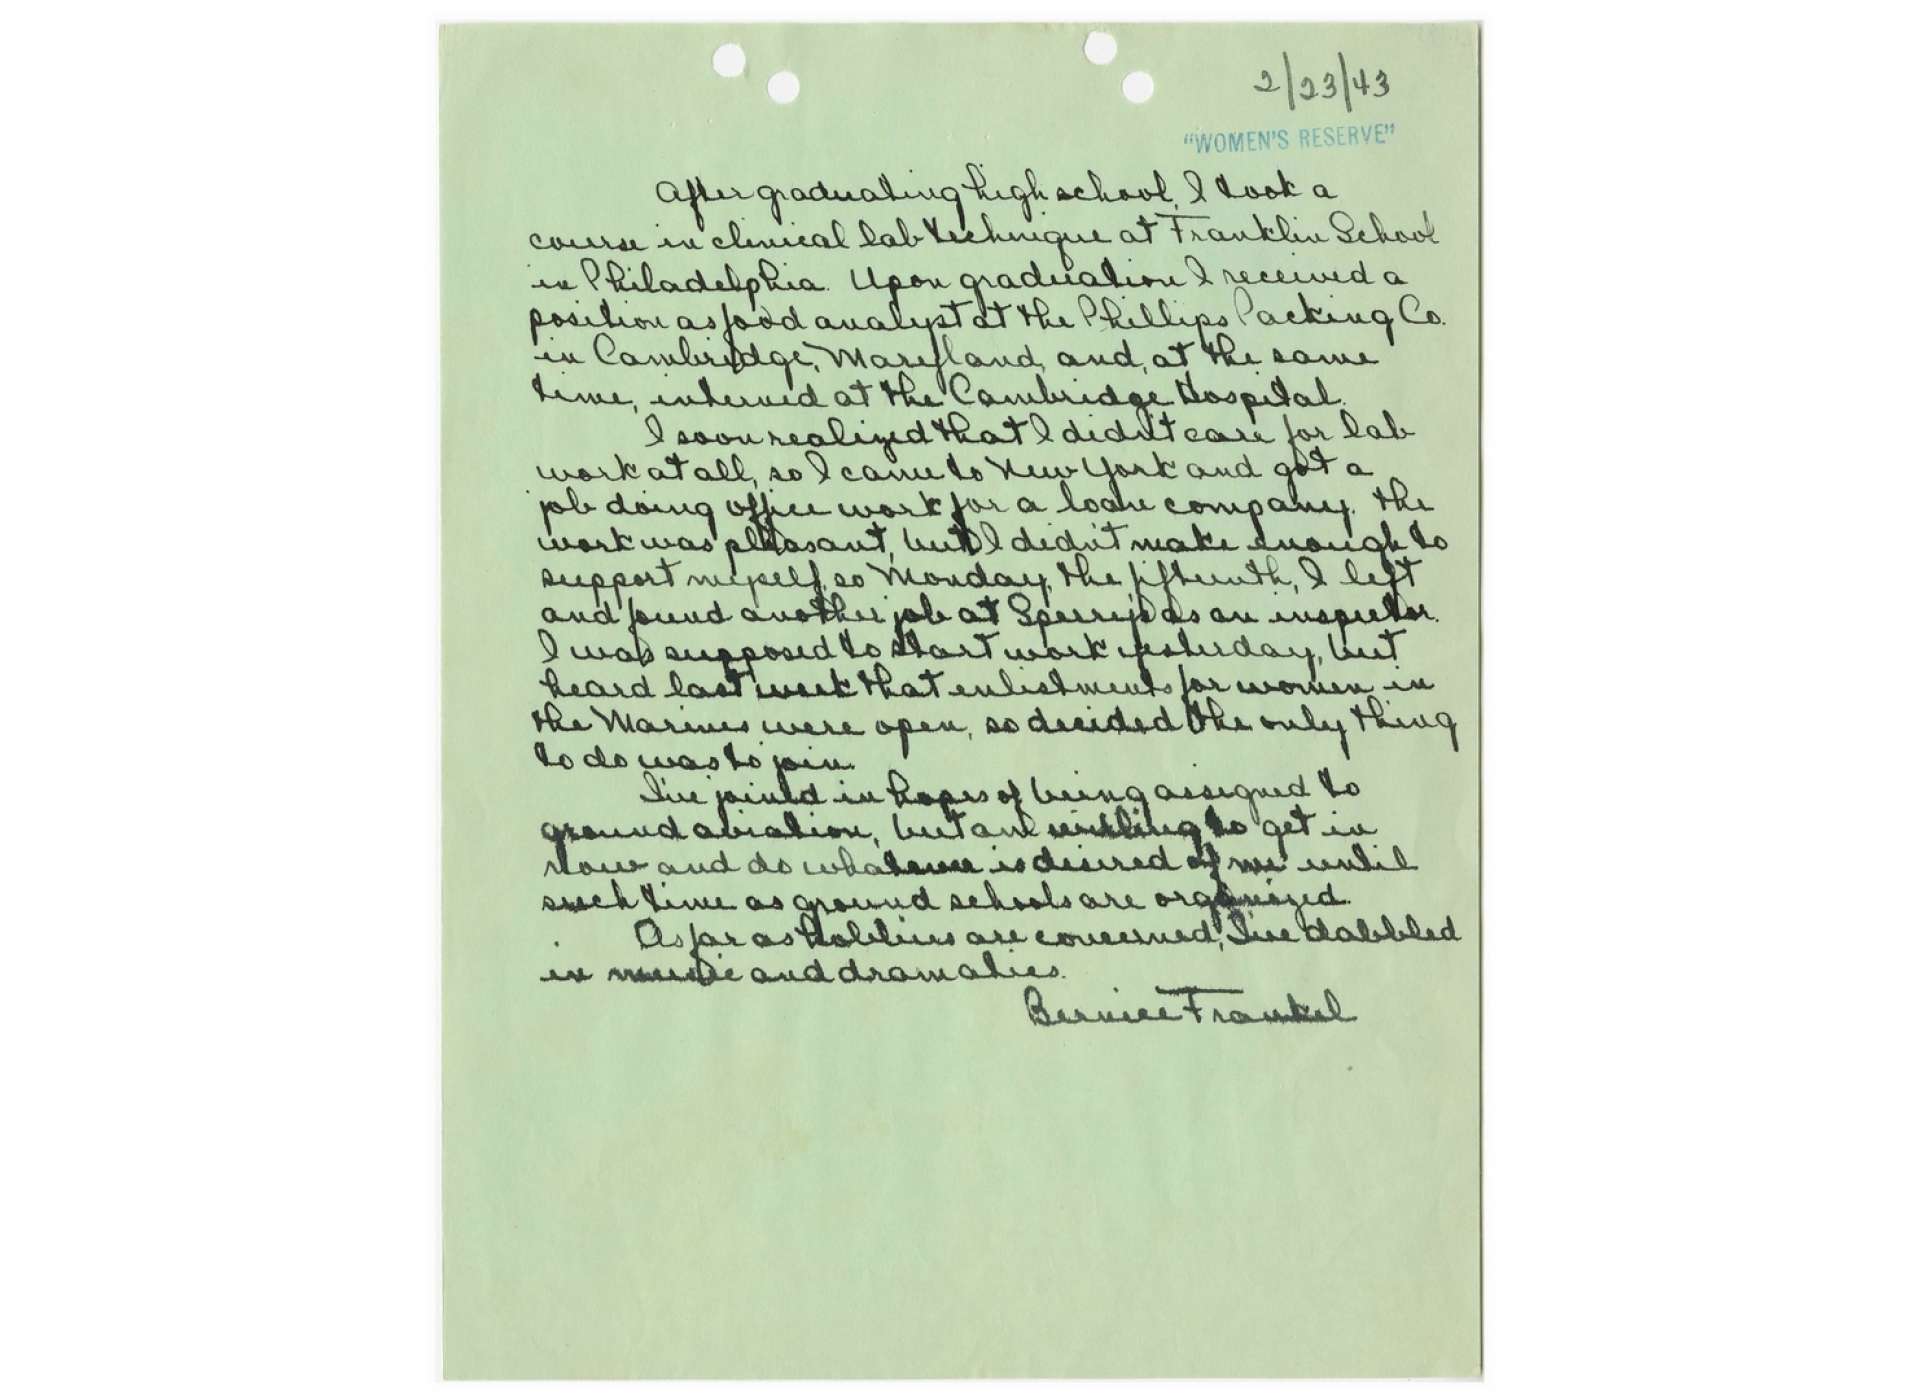 2/23/43
"WOMEN'S RESERVE"
After graduating high school, I took a
course in clinical lab technique at Franklin School
in Philadelphia. Upon graduation I received a
position as food analyst at the Phillips Packing Co.
in Cambridge, Maryland, and, at the same
time, interned at the Cambridge Hospital.
I soon realized that I didn't care for lab
work at all, so I came to New York and got a
job doing office work for a loan company. The
work was pleasant, but I didn't make enough to
support myself, so Monday, the fifteenth, I left
and found another job at Sperry's as an inspector.
I was supposed to start work yesterday, but
heard last week that enlistments for women in
the Marines were open, so decided the only thing
to do was to join.
I've joined in hopes of being assigned to
ground aviation, but am willing to get in
now and do whatever is desired of me until
such time as ground schools are organized.
As far as hobbies are concerned, I've dabbled
in music and dramatics.
Bernice Frankel